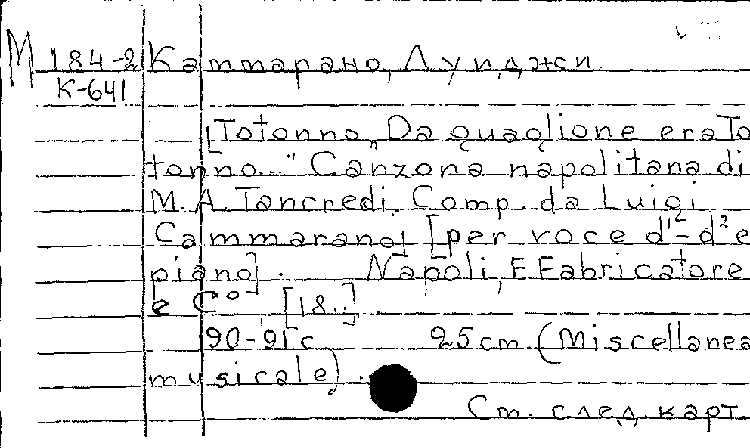 М 184-2 Каммарано, Луиджи.
К-641
[Totonno „Da quaglione era To
tonno..." Canzona napolitana di
M. A. Tancredi. Comp. da Luigi
Cammarano] [per voce d'²-d² e
piano]. Napoli, E. Fabricatore
e Cº [18..]
90-91 с 25 cm. (Miscellanea
musicale).
См. след. карт.